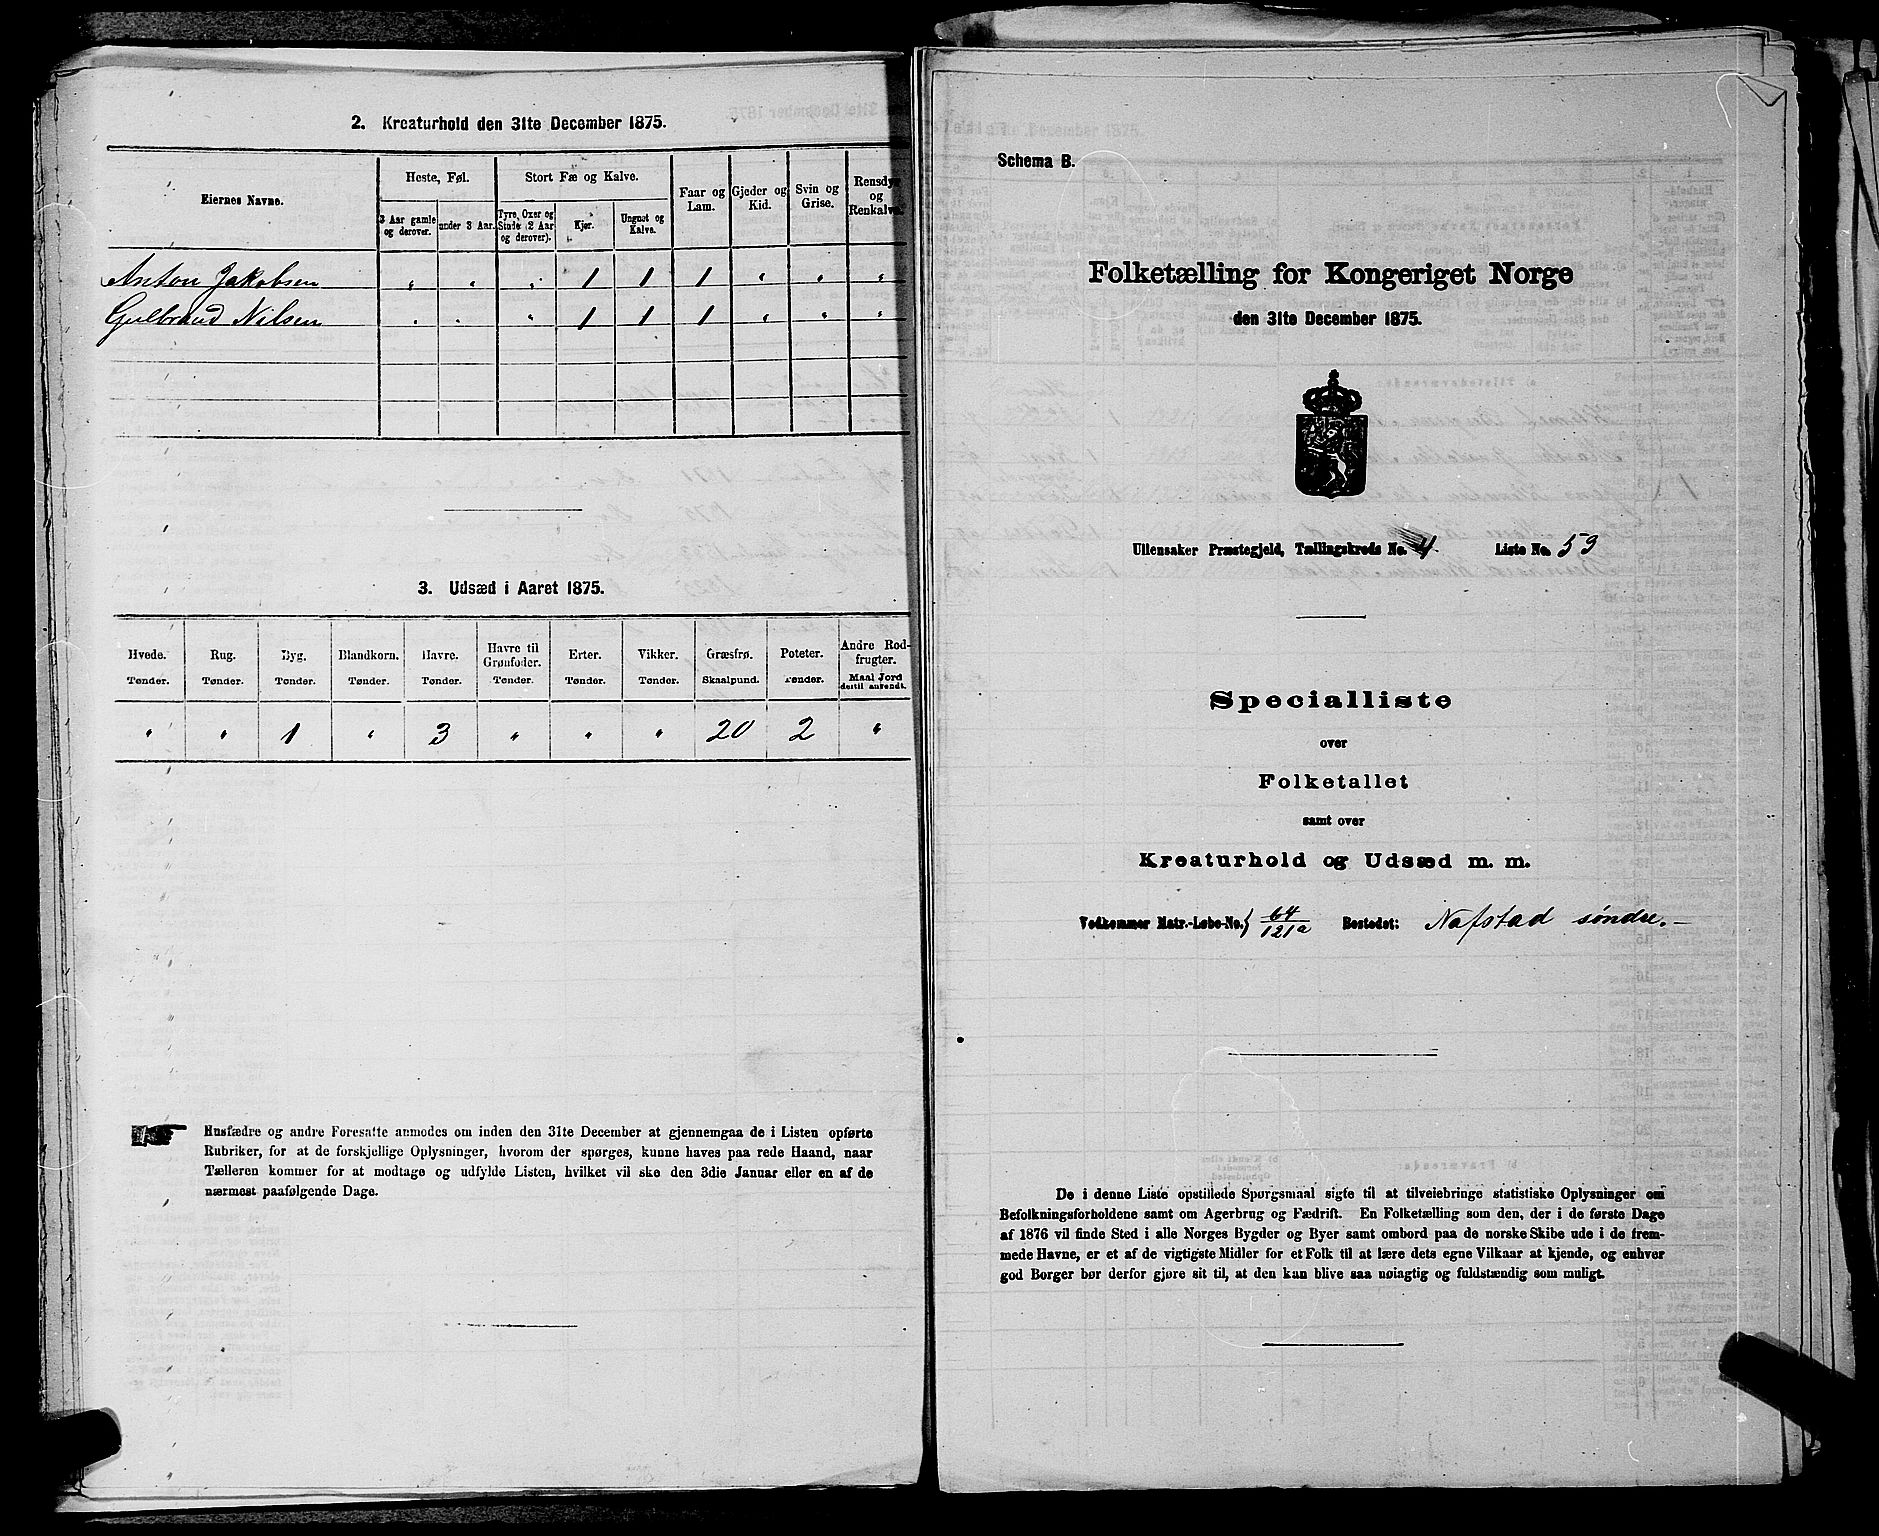 2. Kreaturhold den 31te December 1875.
Eiernes Navne. Heste, Føl. Stort Fæ og Kalve. Faar og Lam. Gjeder og Kid. Svin og Grise. Rensdyr og Renkalve.
3 Aar gamle og derover. under 3 Aar. Tyre, Oxer og Stude (2 Aar og derover). Kjør. Ungnøt og Kalve.
Anton Jakobsen " " " 1 1 1 " " "
Gulbrand Nilsen " " " 1 1 1 " " "
3. Udsæd i Aaret 1875.
Hvede. Rug. Byg. Blandkorn. Havre. Havre til Grønfoder. Erter. Vikker. Græsfrø. Poteter. Andre Rodfrugter.
Tønder. Tønder. Tønder. Tønder. Tønder. Tønder. Tønder. Tønder. Skaalpund. Tønder. Maal Jord dertil anvendt.
" " 1 " 3 " " " 20 2 "
Husfædre og andre Foresatte anmodes om inden den 31te December at gjennemgaa de i Listen opførte
Rubriker, for at de forskjellige Oplysninger, hvorom der spørges, kunne haves paa rede Haand, naar
Tælleren kommer for at modtage og udfylde Listen, hvilket vil ske den 3die Januar eller en af de
nærmest paafølgende Dage.
Schema B.
Folketælling for Kongeriget Norge
den 31te December 1875.
Ullensaker Præstegjeld, Tællingskreds No. 4 Liste No. 53
Specialliste
over
Folketallet
samt over
Kreaturhold og Udsæd m. m.
Vedkommer Matr.-Løbe-No. 64/121a Bostedet: Nafstad søndre.
De i denne Liste opstillede Spørgsmaal sigte til at tilveiebringe statistiske Oplysninger om
Befolkningsforholdene samt om Agerbrug og Fædrift. En Folketælling som den, der i de første Dage
af 1876 vil finde Sted i alle Norges Bygder og Byer samt ombord paa de norske Skibe ude i de frem-
mede Havne, er et af de vigtigste Midler for et Folk til at lære dets egne Vilkaar at kjende, og enhver
god Borger bør derfor gjøre sit til, at den kan blive saa nøiagtig og fuldstændig som muligt.